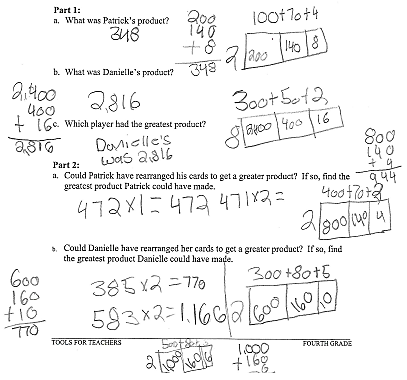 Part 1:
a. What was Patrick's product?
348
200
140
+ 8
348
100+70+4
2 200 140 8
b. What was Danielle's product?
2,816
2,400
400
+ 16
2,816
300+50+2
8 2400 400 16
c. Which player had the greatest product?
Danielle's
was 2,816
Part 2:
a. Could Patrick have rearranged his cards to get a greater product? If so, find the
greatest product Patrick could have made.
472x1=472 471x2=
800
140
+ 4
944
400+70+2
2 800 140 4
b. Could Danielle have rearranged her cards to get a greater product? If so, find
the greatest product Danielle could have made.
600
160
+10
770
385x2=770
583x2=1,166
300+80+5
2 600 160 10
TOOLS FOR TEACHERS
FOURTH GRADE
500+80+3
2 1000 160 6
1,000
+160
6